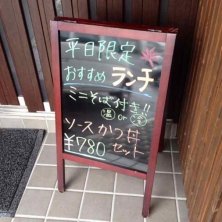 平日限定
おすすめランチ
ミニそば付き!!
温 or 冷
ソースかつ丼
¥780 セット